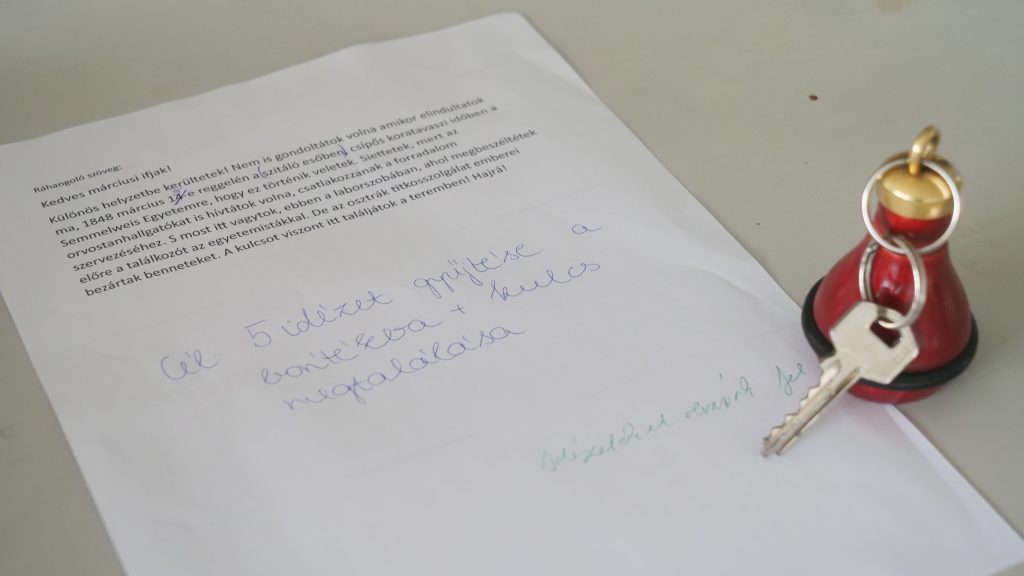 Ráhangoló szöveg:
Kedves márciusi ifjak!
Különös helyzetbe kerültetek! Nem is gondoltátok volna amikor elindultatok
ma, 1848 március reggelén a szitáló esőben, csípős koratavaszi időben a
Semmelweis Egyetemre, hogy ez történik veletek. Siettetek, mert az
orvostanhallgatókat is hívtátok volna, csatlakozzanak a forradalom
szervezéséhez. S most itt vagytok, ebben a laborszobában, ahol megbeszéltétek
előre a találkozót az egyetemistákkal. De az osztrák titkosszolgálat emberei
bezártak benneteket. A kulcsot viszont itt találjátok a teremben! Hajrá!
Cél: 5 idézet gyűjtése a
borítékba + kulcs
megtalálása